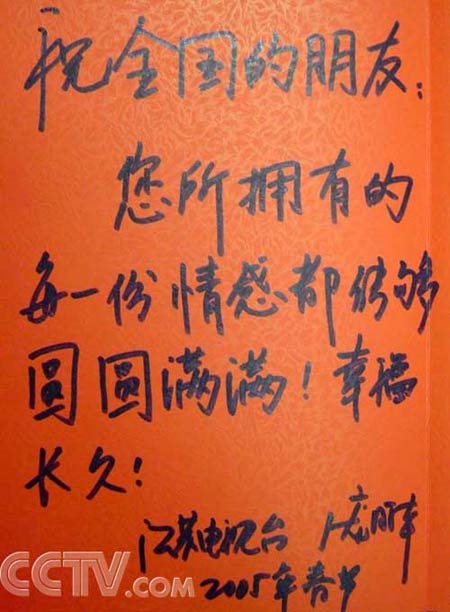 祝全国的朋友：
您所拥有的
每一份情感都能够
圆圆满满！幸福
长久！
江苏电视台
2005年春节
CCTV.com